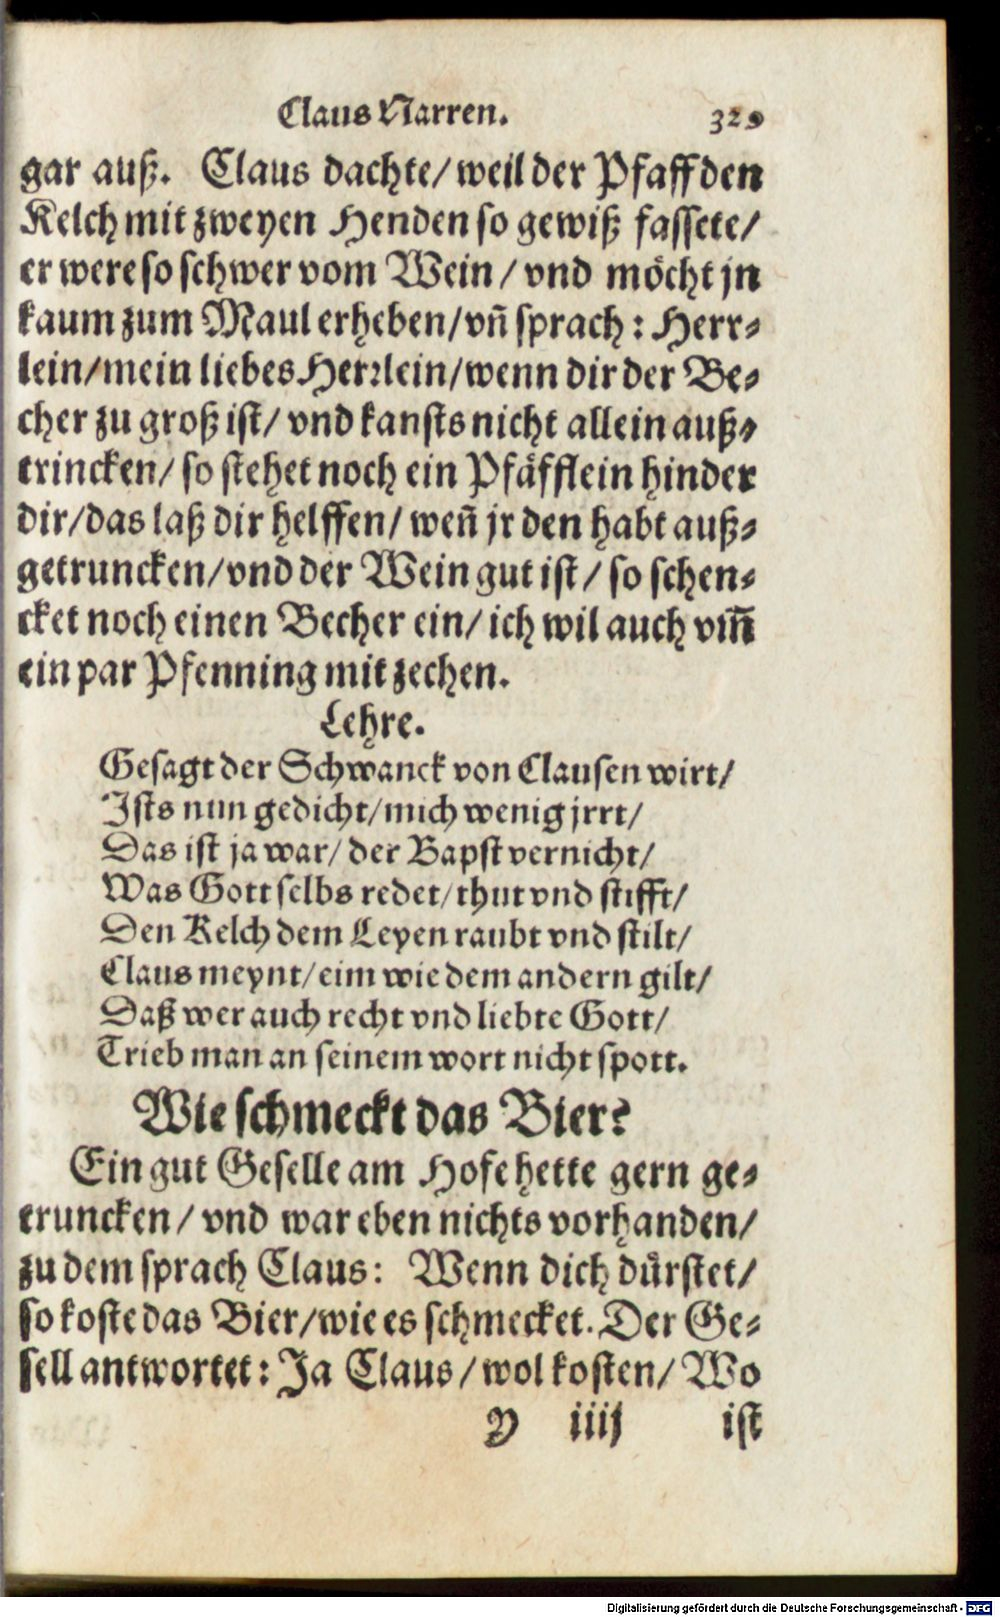 Claus Narren. 329
gar auß. Claus dachte/ weil der Pfaff den
Kelch mit zweyen Henden so gewiß fassete/
er were so schwer vom Wein / vnd möcht jn
kaum zum Maul erheben/ vñ sprach : Herr⸗
lein/ mein liebes Herrlein/ wenn dir der Be⸗
cher zu groß ist/ vnd kansts nicht allein auß⸗
trincken/ so stehet noch ein Pfäfflein hinder
dir/ das laß dir helffen/ weñ jr den habt auß⸗
getruncken/ vnd der Wein gut ist / so schen⸗
cket noch einen Becher ein/ ich wil auch vm̃
ein par Pfenning mit zechen.
Lehre.
Gesagt der Schwanck von Clausen wirt/
Ists nun gedicht/ mich wenig jrrt/
Das ist ja war/ der Bapst vernicht/
Was Gott selbs redet/ thut vnd stifft/
Den Kelch dem Leyen raubt vnd stilt/
Claus meynt/ eim wie dem andern gilt/
Daß wer auch recht vnd liebte Gott/
Trieb man an seinem wort nicht spott.
Wie schmeckt das Bier?
Ein gut Geselle am Hofe hette gern ge⸗
truncken / vnd war eben nichts vorhanden/
zu dem sprach Claus: Wenn dich dürstet/
so koste das Bier/ wie es schmecket. Der Ge⸗
sell antwortet: Ja Claus / wol kosten/ Wo
Y iiij ist
Digitalisierung gefördert durch die Deutsche Forschungsgemeinschaft - DFG